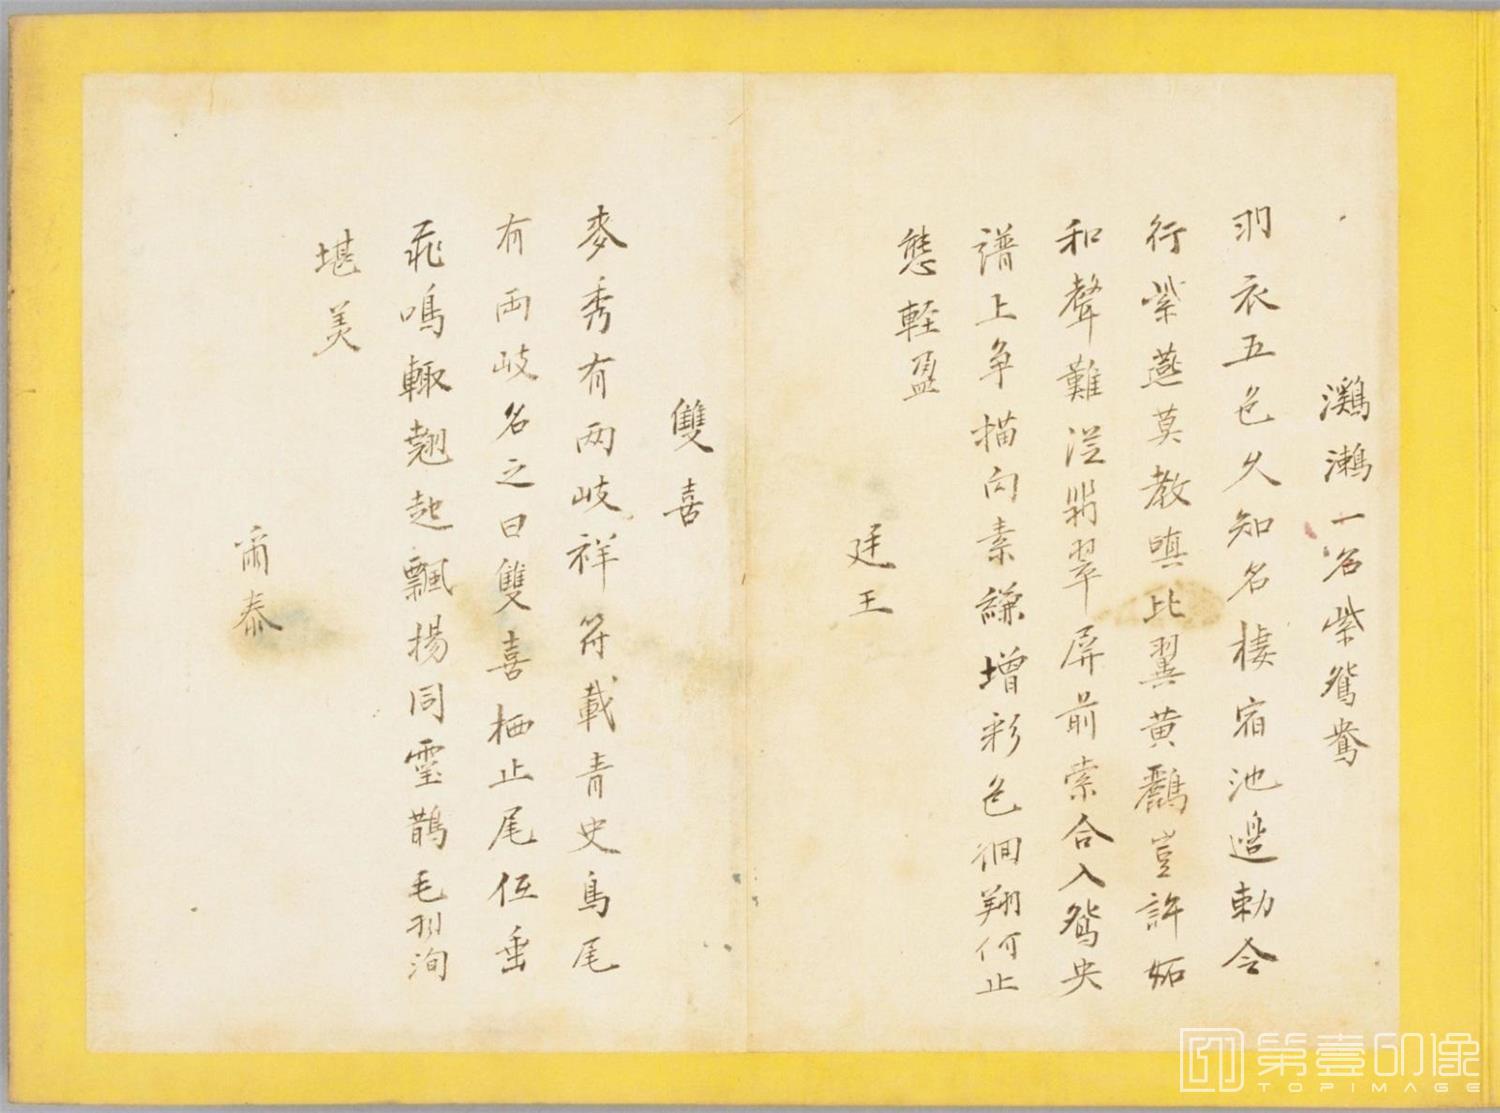 鸂鶒一名紫鴛鴦
羽衣五色久知名棲宿池邊勅令
行紫燕莫教嗔比翼黃鸝豈許妬
和聲難從翡翠屏前索合入鴛央
譜上爭描向素縑增彩色徊翔何止
態輕盈
廷王
雙喜
麥秀有两岐祥符載青史鳥尾
有両岐名之曰雙喜栖止尾低垂
飛鳴輙翹起飄揚同靈鵲毛羽洵
堪美
爾泰
第壹印像
TOPIMAGE